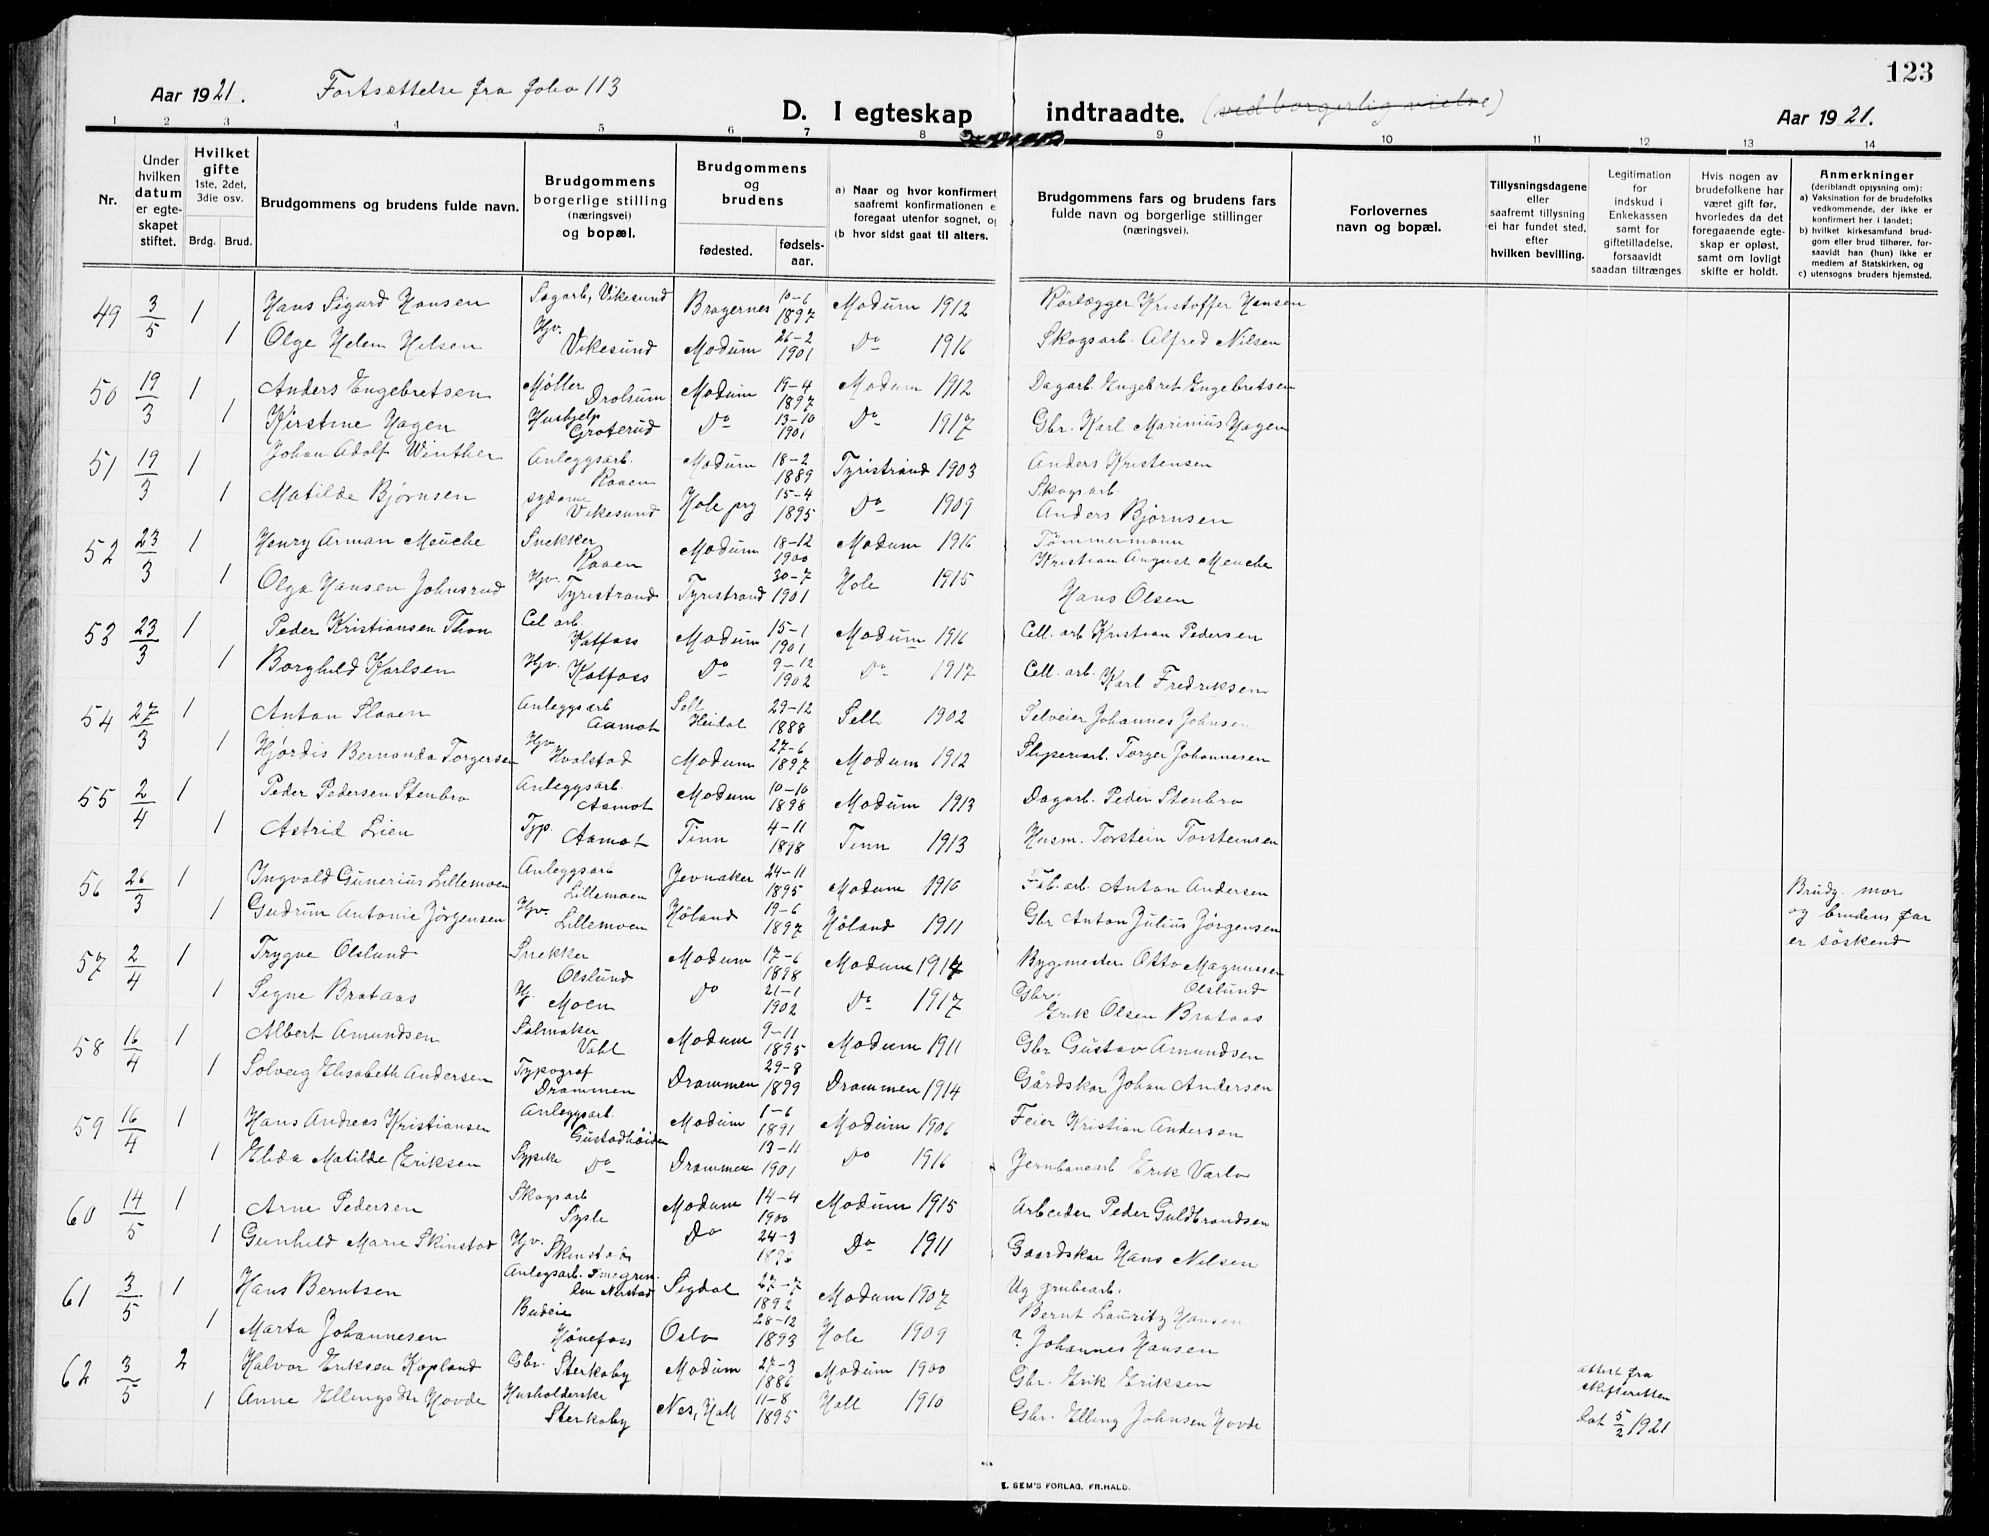 123
Aar 1921. Fortsættelse fra folio 113
D. I egteskap indtraadte. (ved borgerlig vielse)
Aar 1921.
1 2 3 4 5 6 7 8 9 10 11 12 13 14
Nr.
Under hvilken datum er egte-skapet stiftet.
Hvilket gifte 1ste, 2det, 3die osv.
Brdg. Brud.
Brudgommens og brudens fulde navn.
Brudgommens borgerlige stilling (næringsvei) og bopæl.
Brudgommens og brudens
fødested. fødsels-aar.
a) Naar og hvor konfirmert saafremt konfirmationen e foregaat utenfor sognet, o
(b hvor sidst gaat til alters.
Brudgommens fars og brudens fars fulde navn og borgerlige stillinger (næringsvei).
Forlovernes navn og bopæl.
Tillysningsdagene eller saafremt tillysning ei har fundet sted, efter hvilken bevilling.
Legitimation for indskud i Enkekassen samt for giftetilladelse, forsaavidt saadan tiltrænges
Hvis nogen av brudefolkene har været gift før, hvorledes da det foregaaende egte-skap er opløst, samt om lovligt skifte er holdt.
Anmerkninger (deriblandt opjysning om):
a) Vaksination for de brudefolks vedkommende, der ikke er konfirmert her i landet;
b) hvilket kirkesamfund brud-gom eller brud tilhører, for-saavidt han (hun) ikke er medlem af Statskirken, og
c) utensogns bruders hjemsted.
49 3/5 1 Hans Sigurd Hansen Sagarb, Vikesund Bragernes 10-6 1897 Modum 1912 Rörlægger Kristoffer Hansen
1 Olge Helem Nilsen Hjv. Vikesund Modum 26-2 1901 Do 1916 Skogsarb. Alfred Nilsen
50 19/3 1 Anders Engebretsen Møller Drolsum Modum 19-4 1897 Modum 1912 Dagarb. Engebret Engebretsen
1 Kirstine Hagen Hushjelp Groterud Do 13-10 1901 Do 1917 Gbr. Karl Marinius Hagen
51 19/3 1 Johan Adolf Winther Anleggsarb. Kaaen Modum 18-2 1889 Tyristrand 1903 Anders Kristensen
1 Matilde Bjørnsen sydame Vikesund Hole prg 15-4 1895 Do 1909 Skogsarb. Anders Bjørnsen
52 23/3 1 Henry Arman Meuche Snekker Kaaen Modum 18-12 1900 Modum 1916 Tømmermann Kristian August Meuche
1 Olga Hansen Johnsrud Hjv. Tyristrand Tyristrand 30-7 1901 Hole 1915 Hans Olsen
53 23/3 1 Peder Kristiansen Thon Cel arb Katfoss Modum 15-1 1901 Modum 1916 Cell. arb Kristian Pedersen
1 Borghild Karlsen Hjv. Katfoss Do 9-12 1902 Do 1917 Cell. arb. Karl Fredriksen
54 27/3 1 Anton Slaaen Anleggsarb Aamot Sell Heidal 29-12 1888 Sell 1902 Selveier Johannes Johnsen
1 Hjørdis Bernanda Torgersen Hjv Hvalstad Modum 27-6 1897 Modum 1912 Sliperiarb. Torger Johannesen
55 2/4 1 Peder Pedersen Stenbro Anleggsarb. Aamot Modum 10-10 1898 Modum 1913 Dagarb. Peder Stenbro
1 Astrid Lien Typ. Aamot Tinn 4-11 1898 Tinn 1913 Husm. Torstein Torsteinsen
56 26/3 1 Ingvald Gunerius Lillemoen Anleggsarb Lillemoen Jevnaker 24-11 1895 Modum 1910 Fab. arb. Anton Andersen Brudg. mor
1 Gudrun Antonie Jørgensen Hjv. Lillemoen Høland 19-6 1897 Høland 1911 Gbr Anton Julius Jørgensen og brudens far
er søskend
57 2/4 1 Trygve Olslund Snekker Olslund Modum 17-6 1898 Modum 1914 Bygmester Otto Magnussen Olslund
1 Signe Brataas Hj. Moen Do 21-1 1902 Do 1917 Gbr. Erik Olsen Brataas
58 16/4 1 Albert Amundsen Salmaker Vahl Modum 9-11 1895 Modum 1911 Gbr Gustav Amundsen
1 Solveig Elisabeth Andersen Typograf Drammen Drammen 29-8 1899 Drammen 1914 Gårdskar Johan Andersen
59 16/4 1 Hans Andreas Kristiansen Anleggsarb. Gustadhøiden Modum 1-6 1891 Modum 1906 Feier Kristian Andersen
1 Elida Matilde Eriksen Sypike Do Drammen 13-11 1901 Do 1916 Jernbanearb Erik Varlo
60 14/5 1 Arne Pedersen Skogsarb Sysle Modum 14-4 1900 Modum 1915 Arbeider Peder Guldbrandsen
1 Gunhild Marie Skinstad Hjv. Skinstad Do 24-3 1896 Do 1911 Gaardskar Hans Nilsen
61 3/5 1 Hans Berntsen Anlegsarb. Nerstad Sigdal 27-7 1892 Modum 1907 Ug grubearb. Bernt Lauritz Hansen
1 Marta Johannesen Budeie Hønefoss Oslo 28-12 1893 Hole 1909 ? Johannes Hansen
62 3/5 2 Halvor Eriksen Kopland Gbr. Sterkeby Modum 27-3 1886 Modum 1900 Gbr. Erik Eriksen attest fra
skifteretten
1 Anne Ellingsdtr Hovde Husholderske Sterkeby Nes, Hall 11-8 1895 Hall 1910 Gbr. Elling Johnsen Hovde dat 5/2 1921
E. SEM'S FORLAG, FR.HALD.